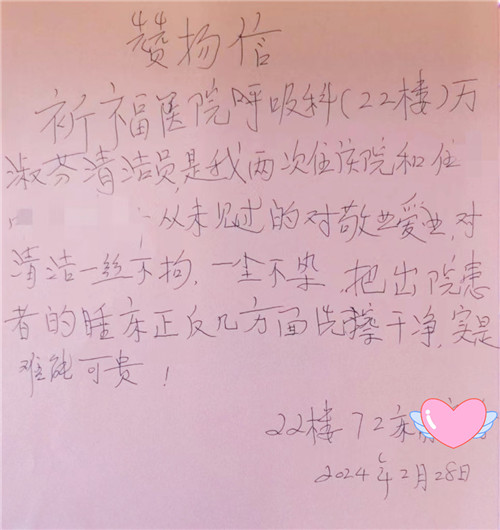 赞扬信
祈福医院呼吸科(22楼)万
淑芬清洁员,是我两次住医院和住
从未见过的对敬业爱业,对
清洁一丝不拘,一尘不染,把出院患
者的睡床正反几方面洗擦干净,实是
难能可贵!
22楼72床
2024年2月28日